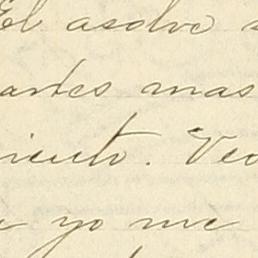 El asolve
antes mas
miento. Veo
yo me